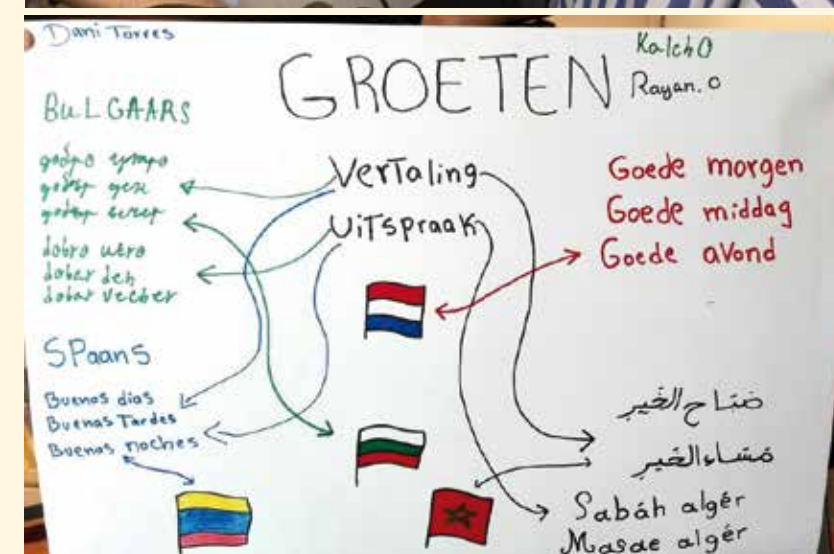 Dani Torres
Kalch O
Rayan. O
GROETEN
BuLGAARS
добро утро
добър ден
добър вечер
dobro utro
dobar deh
dobar vecher
SPaanS
Buenos dias
Buenas Tardes
Buenas noches
VerTaling
UiTspraak
Goede morgen
Goede middag
Goede avond
مَسَاء الخَير
Sabáh algér
Masae algér